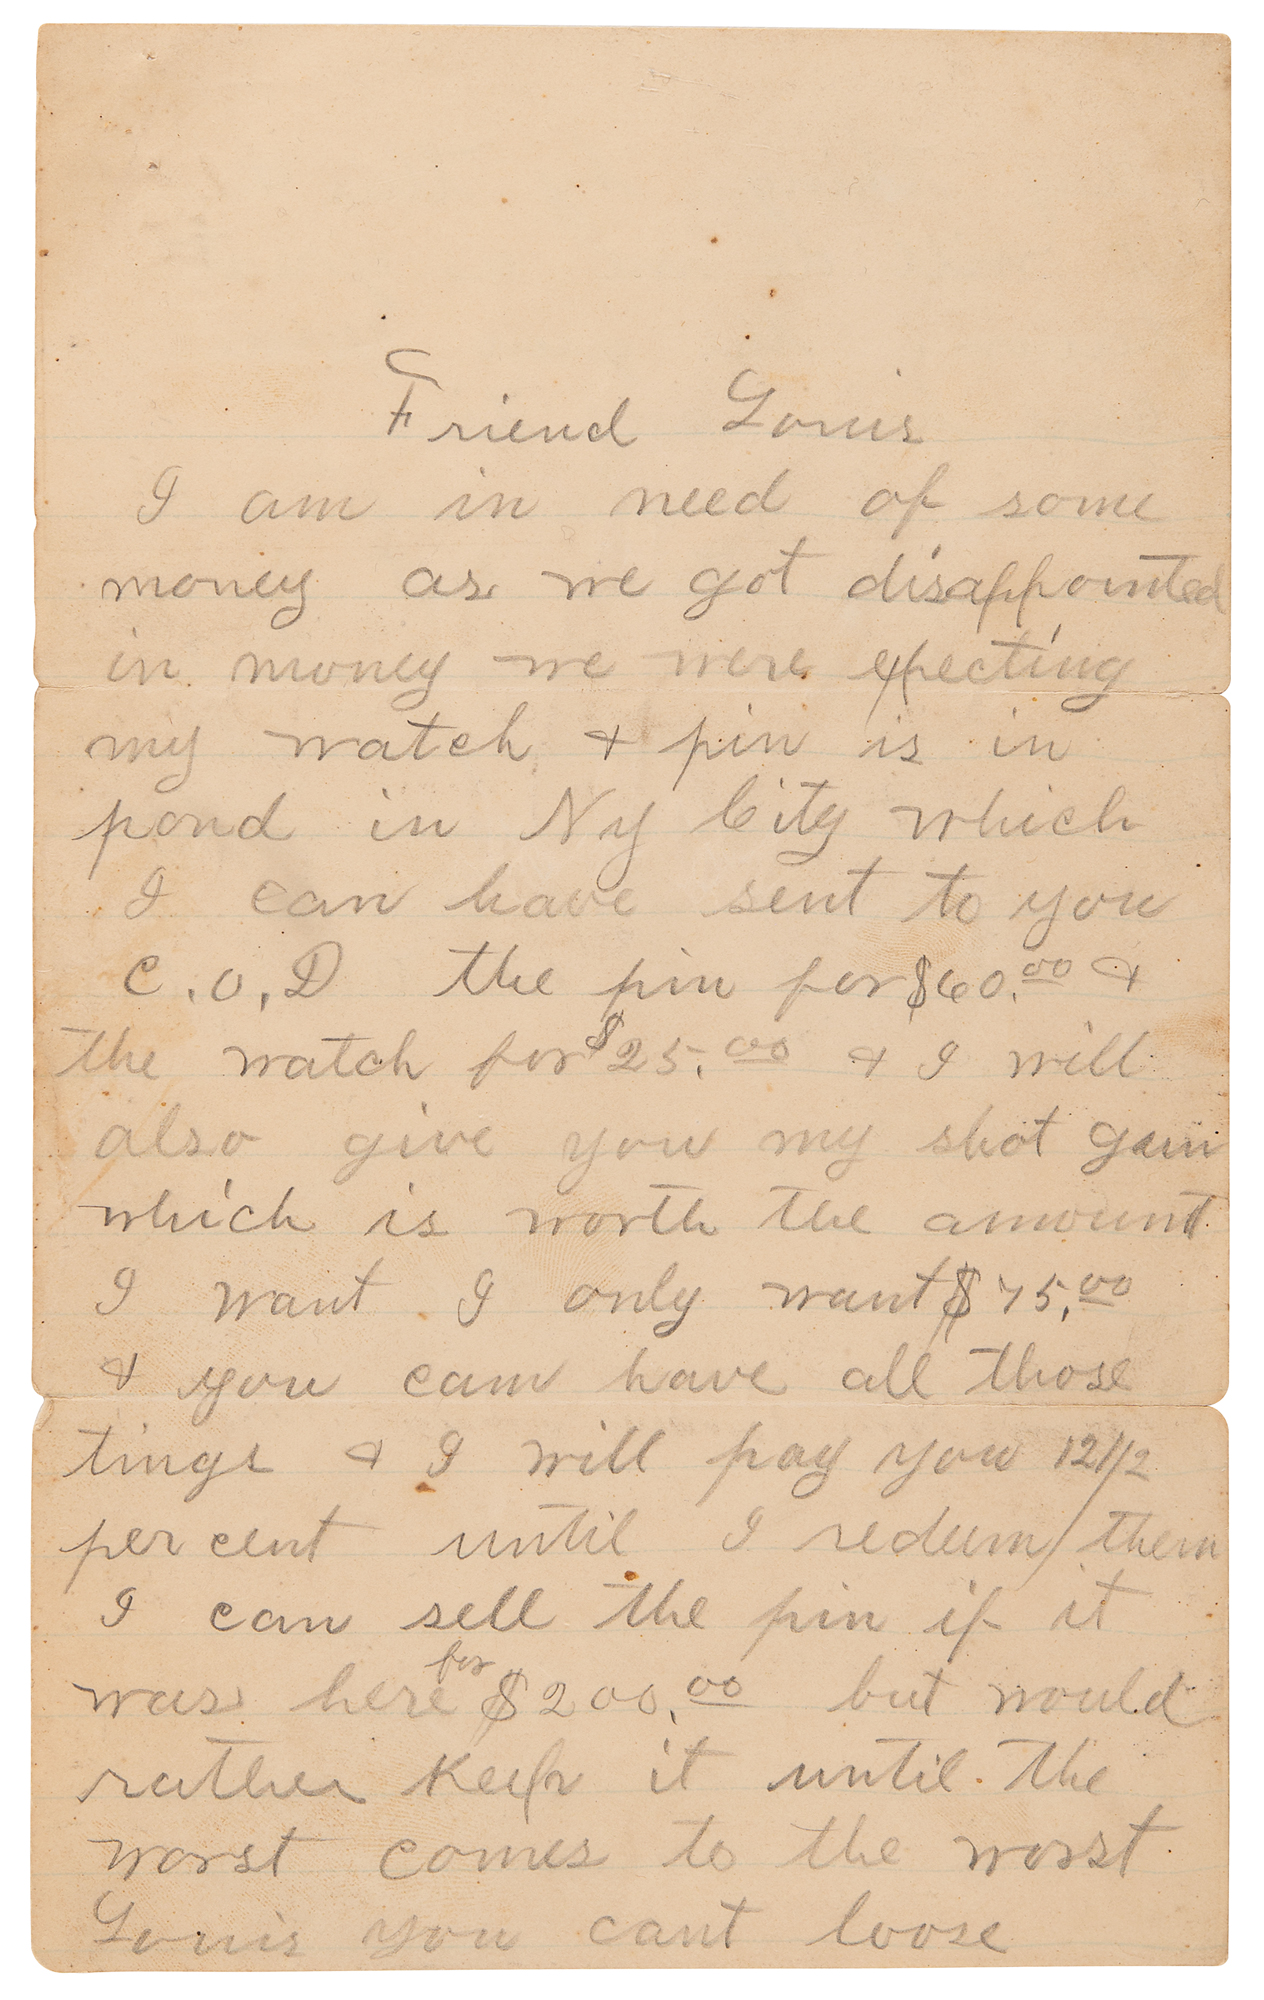 Friend Louis
I am in need of some
money as we got disappointed
in money we were expecting
my watch & pin is in
pond in Ny City which
I can have sent to you
C.O.D the pin for $60.00 &
the watch for $25.00 & I will
also give you my shot gun
which is worth the amount
I want I only want $75.00
& you can have all those
tings & I will pay you 12 1/2
per cent until I redeem them
I can sell the pin if it
was here for $200.00 but would
rather keep it until the
worst comes to the worst
Louis you cant loose